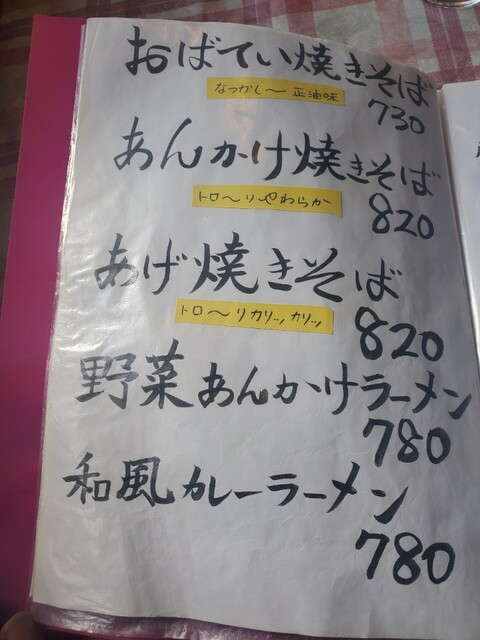 おばてい焼きそば
なつかし〜正油味
730
あんかけ焼きそば
トロ〜りやわらか
820
あげ焼きそば
トロ〜リカリッカリッ
820
野菜あんかけラーメン
780
和風カレーラーメン
780